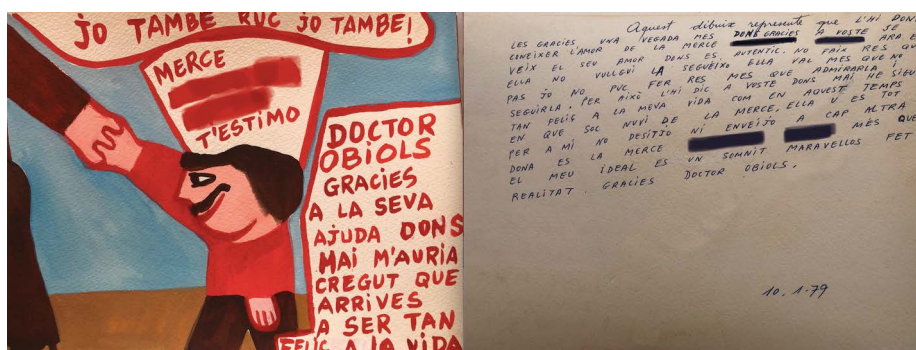 JO TAMBE RUC JO TAMBE!
MERCE
T'ESTIMO
DOCTOR
OBIOLS
GRACIES
A LA SEVA
AJUDA DONS
MAI M'AURIA
CREGUT QUE
ARRIVES
A SER TAN
FELIÇ A LA VIDA
Aquest dibuix represente que l'hi don
LES GRACIES UNA VEGADA MES DONS GRACIES A VOSTE JE
CONEIXER L'AMOR DE LA MERCE ARA E
VEIX EL SEU AMOR DENS ES AUTENTIC. NO FAIX RES QU
ELLA NO VULLGUI LA SEGUEIXO ELLA VAL MES QUE NO
PAS JO NO PUC FER RES MES QUE ADMIRARLA I
SEGUIRLA. PER AIXÒ L'HI DIC A VOSTE DONS MAI HE SIGU
TAN FELIÇ A LA MEVA VIDA COM EN AQUEST TEMPS
EN QUE SOC NUVI DE LA MERCE, ELLA U ES TOT
PER A MI NO DESITJO NI ENVEIJO A CAP ALTRA
DONA ES LA MERCE MÉS QUE
EL MEU IDEAL ES UN SOMNIT MARAVELLOS FET
REALITAT GRACIES DOCTOR OBIOLS.
10.1-79